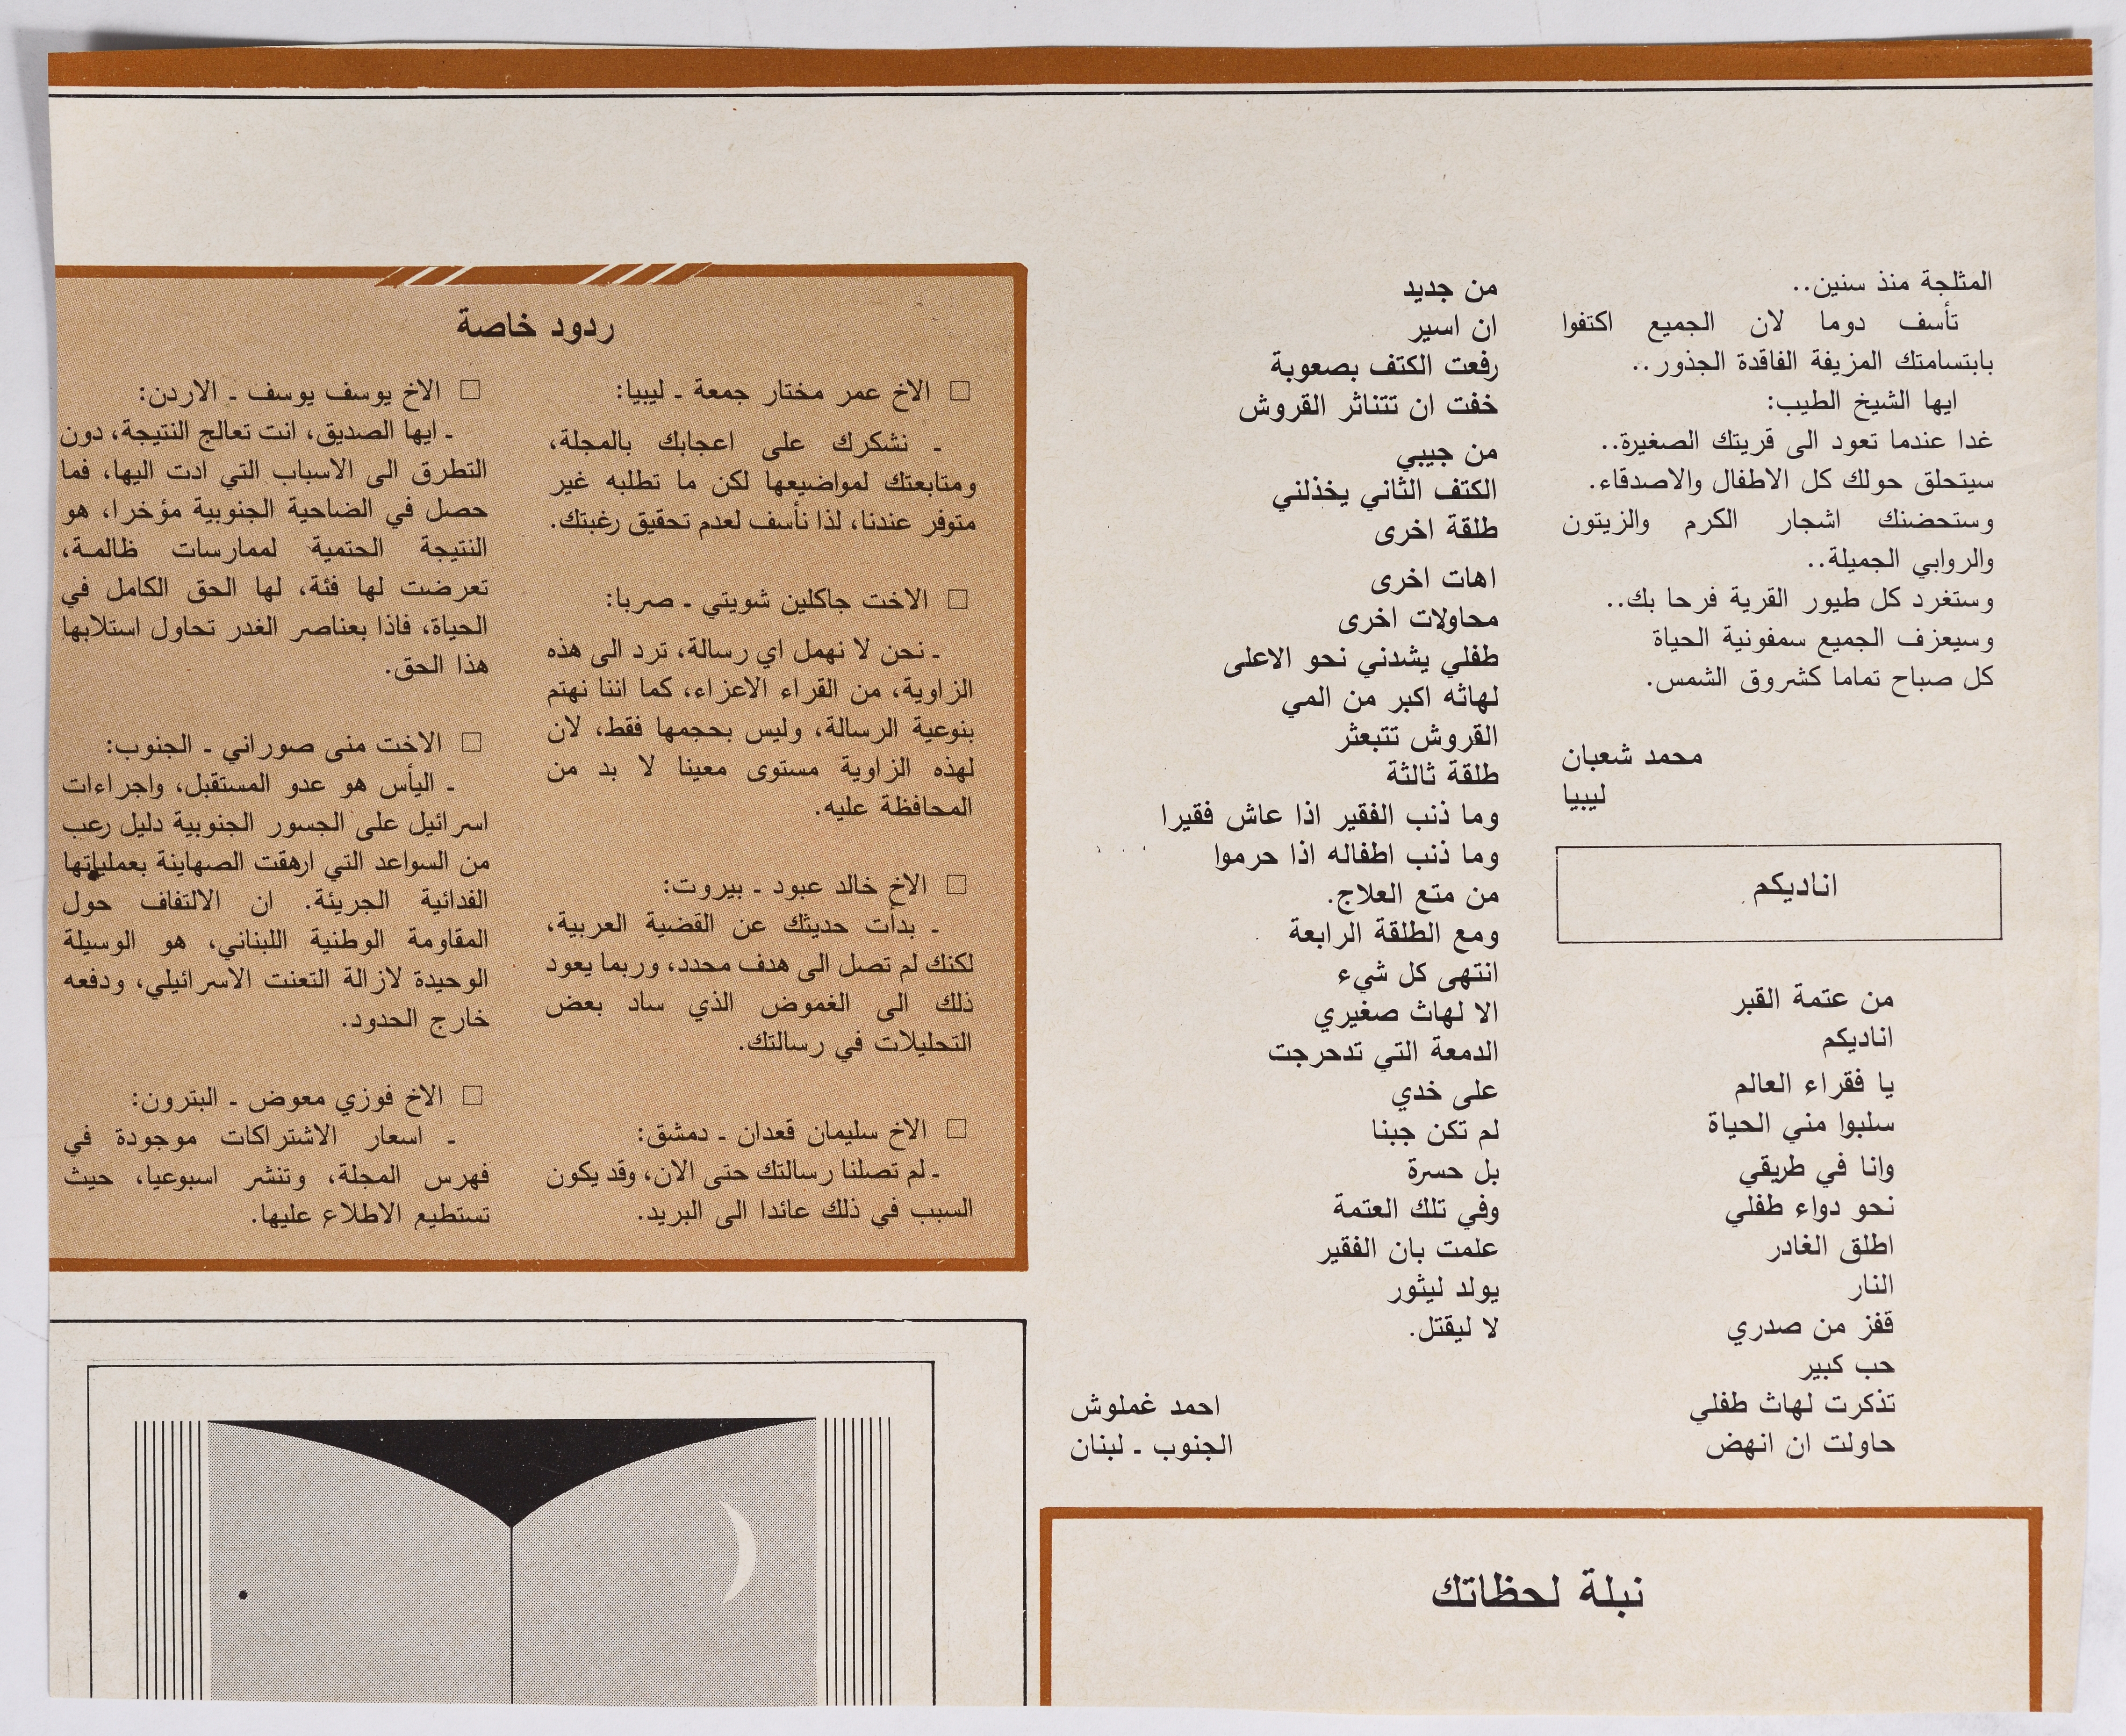 المثلجة منذ سنين..
تأسف دوما لان الجميع اكتفوا
بابتسامتك المزيفة الفاقدة الجذور..
ايها الشيخ الطيب:
غدا عندما تعود الى قريتك الصغيرة..
سيتحلق حولك كل الاطفال والاصدقاء.
وستحضنك اشجار الكرم والزيتون
والروابي الجميلة..
وستغرد كل طيور القرية فرحا بك..
وسيعزف الجميع سمفونية الحياة
كل صباح تماما كشروق الشمس.
محمد شعبان
ليبيا
اناديكم
من عتمة القبر
اناديكم
يا فقراء العالم
سلبوا مني الحياة
وانا في طريقي
نحو دواء طفلي
اطلق الغادر
النار
قفز من صدري
حب كبير
تذكرت لهاث طفلي
حاولت ان انهض
من جديد
ان اسير
رفعت الكتف بصعوبة
خفت ان تتناثر القروش
من جيبي
الكتف الثاني يخذلني
طلقة اخرى
اهات اخرى
محاولات اخرى
طفلي يشدني نحو الاعلى
لهاثه اكبر من المي
القروش تتبعثر
طلقة ثالثة
وما ذنب الفقير اذا عاش فقيرا
وما ذنب اطفاله اذا حرموا
من متع العلاج.
ومع الطلقة الرابعة
انتهى كل شيء
الا لهاث صغيري
الدمعة التي تدحرجت
على خدي
لم تكن جبنا
بل حسرة
وفي تلك العتمة
علمت بان الفقير
يولد ليثور
لا ليقتل.
احمد غملوش
الجنوب ـ لبنان
نبلة لحظاتك
ردود خاصة
□ الاخ عمر مختار جمعة ـ ليبيا:
ـ نشكرك على اعجابك بالمجلة،
ومتابعتك لمواضيعها لكن ما تطلبه غير
متوفر عندنا، لذا نأسف لعدم تحقيق رغبتك.
□ الاخت جاكلين شويتي ـ صربا:
ـ نحن لا نهمل اي رسالة، ترد الى هذه
الزاوية، من القراء الاعزاء، كما اننا نهتم
بنوعية الرسالة، وليس بحجمها فقط، لان
لهذه الزاوية مستوى معينا لا بد من
المحافظة عليه.
□ الاخ خالد عبود ـ بيروت:
ـ بدأت حديثك عن القضية العربية،
لكنك لم تصل الى هدف محدد، وربما يعود
ذلك الى الغموض الذي ساد بعض
التحليلات في رسالتك.
□ الاخ سليمان قعدان ـ دمشق:
ـ لم تصلنا رسالتك حتى الان، وقد يكون
السبب في ذلك عائدا الى البريد.
□ الاخ يوسف يوسف ـ الاردن:
ـ ايها الصديق، انت تعالج النتيجة، دون
التطرق الى الاسباب التي ادت اليها، فما
حصل في الضاحية الجنوبية مؤخرا، هو
النتيجة الحتمية لممارسات ظالمة،
تعرضت لها فئة، لها الحق الكامل في
الحياة، فاذا بعناصر الغدر تحاول استلابها
هذا الحق.
□ الاخت منى صوراني ـ الجنوب:
ـ اليأس هو عدو المستقبل، واجراءات
اسرائيل على الجسور الجنوبية دليل رعب
من السواعد التي ارهقت الصهاينة بعملياتها
الفدائية الجريئة. ان الالتفاف حول
المقاومة الوطنية اللبناني، هو الوسيلة
الوحيدة لازالة التعنت الاسرائيلي، ودفعه
خارج الحدود.
□ الاخ فوزي معوض ـ البترون:
ـ اسعار الاشتراكات موجودة في
فهرس المجلة، وتنشر اسبوعيا، حيث
تستطيع الاطلاع عليها.